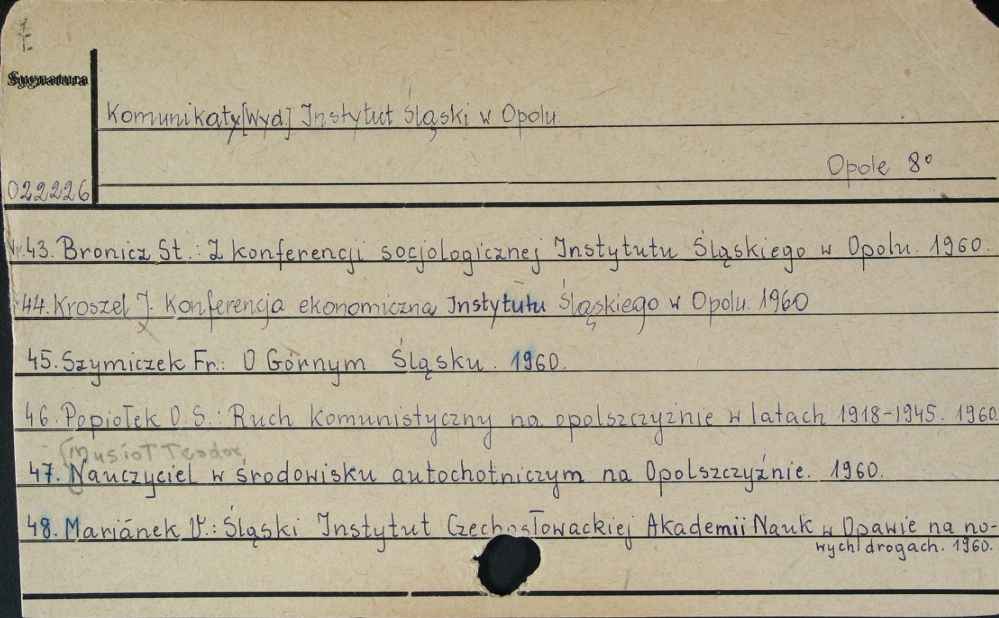 Sygnatura
Komunikaty [Wyd] Instytut Śląski w Opolu
Opole 8°
022226
Nr. 43. Bronicz St.: Z konferencji socjologicznej Instytutu Śląskiego w Opolu. 1960.
44. Kroszel J. Konferencja ekonomiczna Instytutu Śląskiego w Opolu. 1960
45. Szymiczek Fr.: O Górnym Śląsku. 1960.
46. Popiołek O.S.: Ruch komunistyczny na opolszczyźnie w latach 1918-1945. 1960.
(Musioł Teodor
47. Nauczyciel w środowisku autochotniczym na Opolszczyźnie. 1960.
48. Mariánek V.: Śląski Instytut Czechosłowackiej Akademii Nauk w Opawie na no-
wych drogach. 1960.